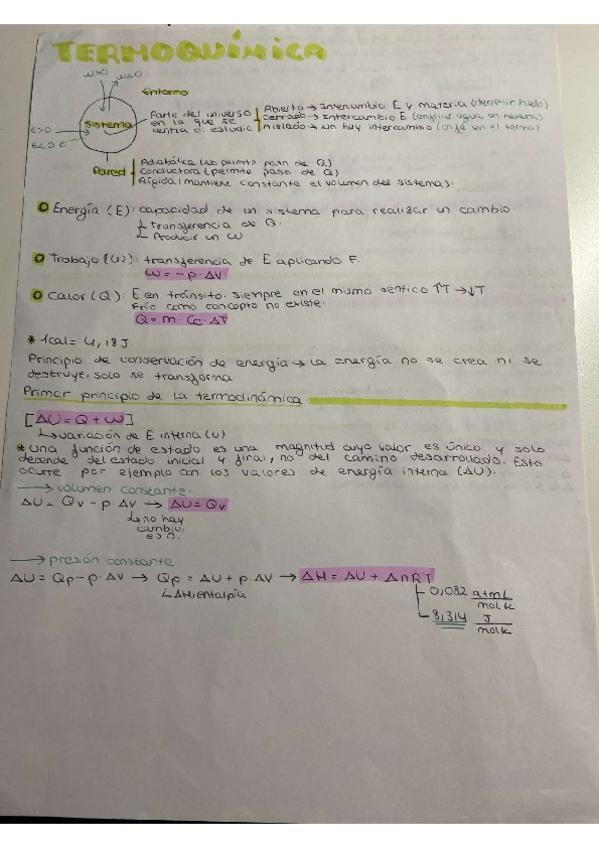 TERMOQUÍMICA
W>0 W<0
Entorno
E>0
E<0
Sistema
Parte del universo en la que se centra el estudio
Abierto → Intercambio E y materia (derretir hielo)
cerrado → Intercambio E (enfriar agua en nevera)
Aislado → no hay intercambio (café en el termo)
Pared
Adiabática (no permite paso de Q)
Conductora (permite paso de Q)
Rígida (mantiene constante el volumen del sistema).
Energía (E): capacidad de un sistema para realizar un cambio.
Transferencia de Q.
Producir un W
Trabajo (W): transferencia de E aplicando F.
W = -p·ΔV
Calor (Q): E en tránsito. siempre en el mismo sentido ↑T→↓T
Frío como concepto no existe.
Q = m Ce·ΔT
* 1cal = 4,18J.
Principio de conservación de energía → La energía no se crea ni se
destruye, solo se transforma
Primer principio de la termodinámica
[ΔU = Q + W]
↳ variación de E interna (U)
* una función de estado es una magnitud cuyo valor es único y solo
depende del estado inicial y final, no del camino desarrollado. Esto
ocurre por ejemplo con los valores de energía interna (ΔU).
→ volumen constante.
ΔU = Qv - p·ΔV → ΔU = Qv
↳ no hay
cambio,
es 0.
→ presión constante
ΔU = Qp - p·ΔV → Qp = ΔU + p·ΔV → ΔH = ΔU + ΔnRT
↳ ΔH, entalpía
0,082 atm L / mol k
8,314 J / mol k